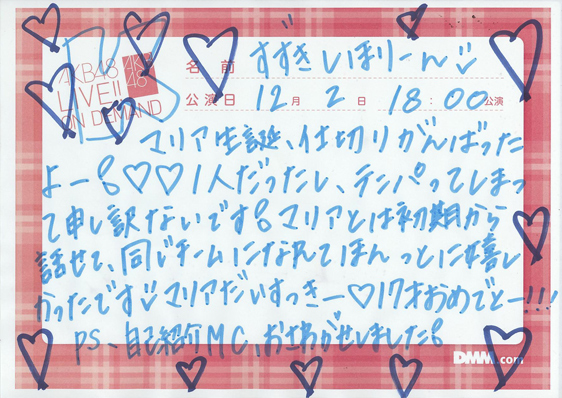 AKB48
LIVE!!
ON DEMAND
AKB
48
名 前 すずきしほりーん
公演日 12月 2日 18:00公演
マリア生誕、仕切りがんばった
よー!♡♡1人だったし、テンパってしまっ
て申し訳ないです!マリアとは初期から
話せて、同じチームになれてほんっとに嬉し
かったです♡マリアだいすっきー♡17才おめでとー!!!
PS、自己紹介MC、おさわがせしました!
DMM.com